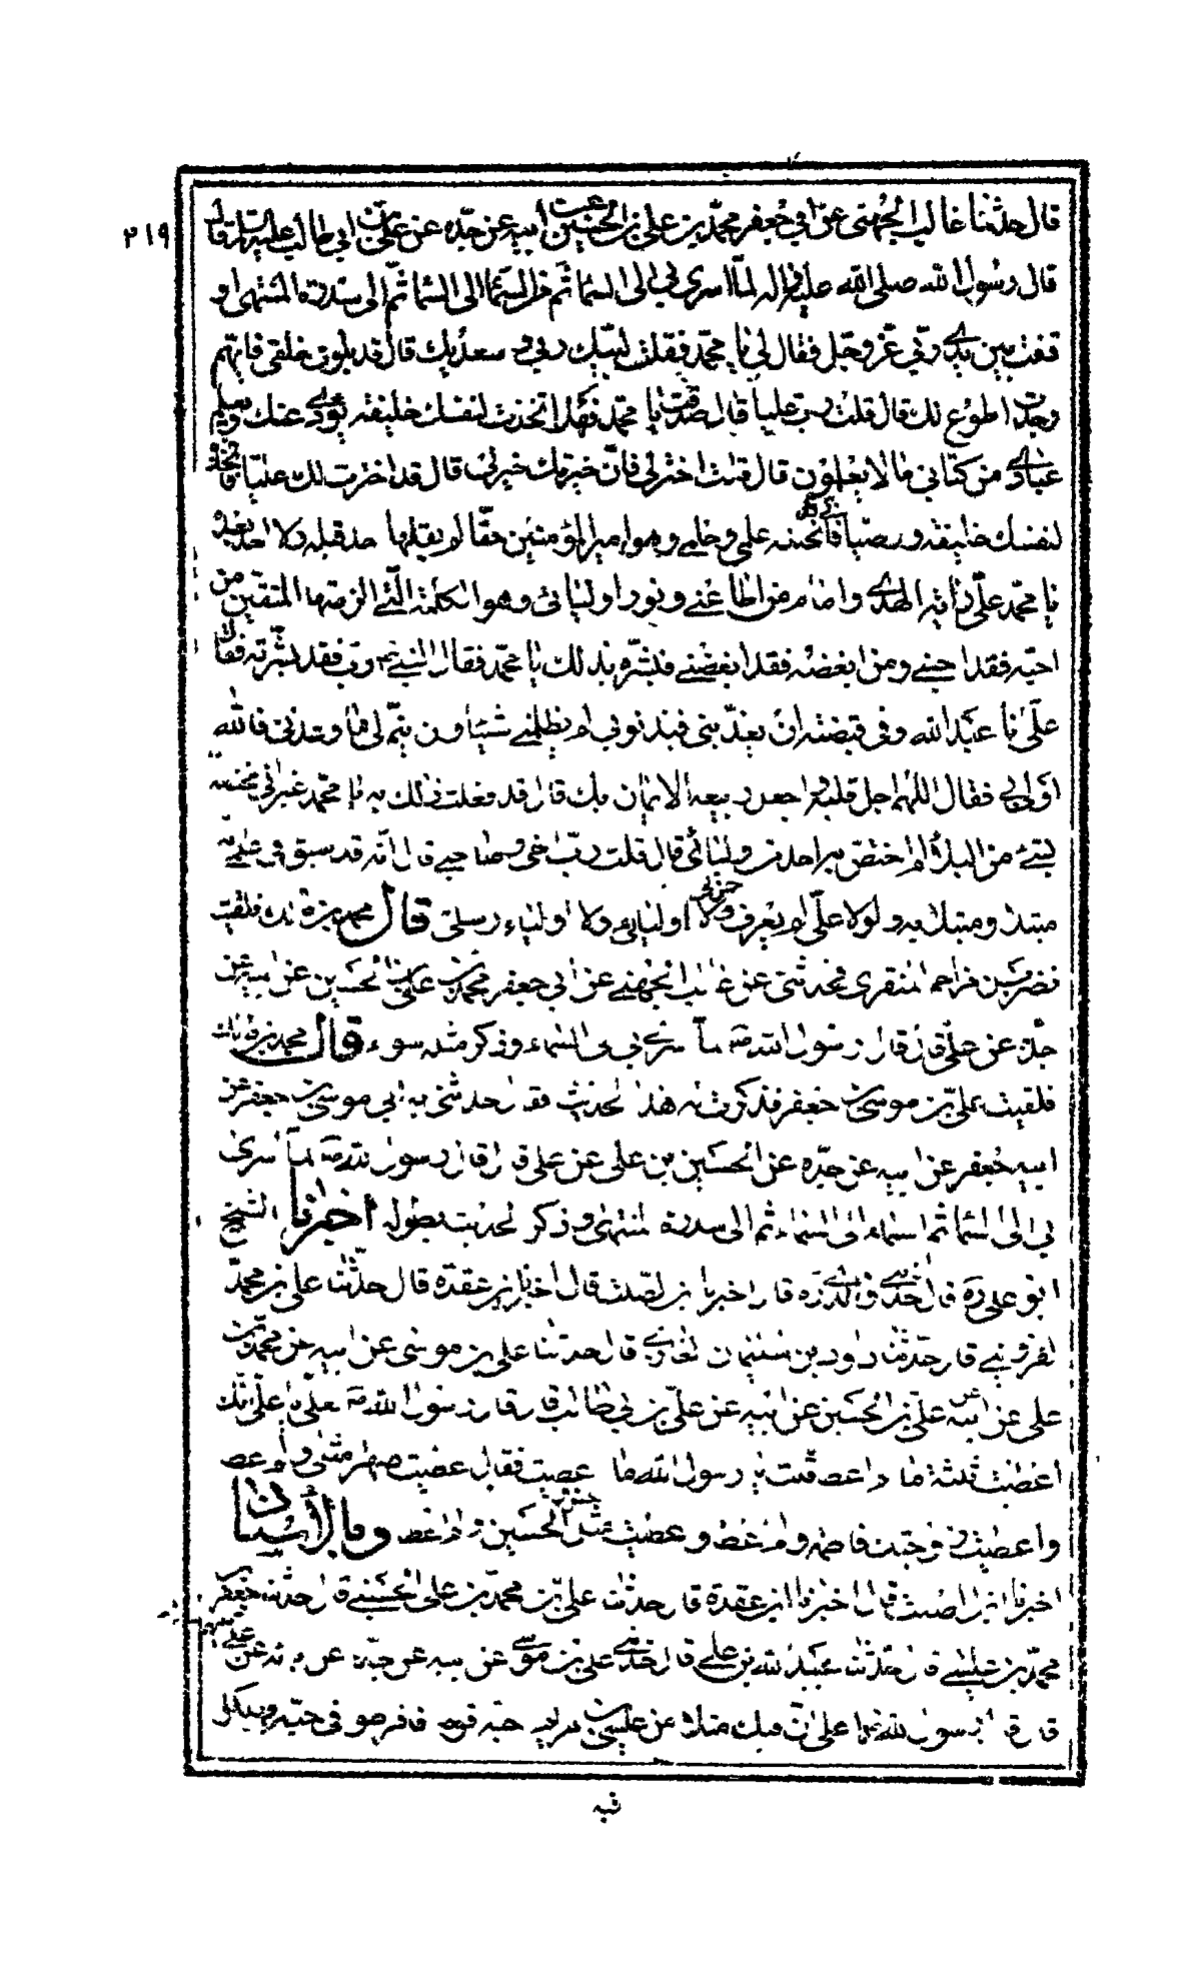 ٢١٩
قال حدثنا غالب الجهني عن ابي جعفر محمد بن علي بن الحسين عن أبيه عن جده عن علي بن ابي طالب عليه السلام قال
قال رسول الله صلى الله عليه واله لما اسرى بي الى السماء ثم من السماء الى السماء ثم الى سدرة المنتهى او
قفت بين يدي ربي عز وجل فقال لي يا محمد فقلت لبيك ربي و سعديك قال قد بلوت خلقي فايهم
وجدت اطوع لك قال قلت رب عليا قال صدقت يا محمد فهل اتخذت لنفسك خليفة يؤدي عنك ويعلم
عبادي من كتابي ما لا يعلمون قال قلت اختر لي فان خيرتك خير لي قال قد اخترت لك عليا فاتخذه
لنفسك خليفة ووصيا فاني نحلته علمي وحلمي وهو امير المؤمنين حقا لم يقلها احد قبله ولا احد بعده
يا محمد علي راية الهدى وامام من اطاعني ونور اوليائي وهو الكلمة التي الزمتها المتقين من
احبه فقد احبني ومن ابغضه فقد ابغضني فبشره بذلك يا محمد فقال النبي رب فقد بشرته فقال
علي انا عبد الله وفي قبضته ان يعذبني فبذنوبي لم يظلمني شيئا وان يتم لي ما وعدني فالله
اولى بي فقال اللهم اجل قلبه واجعل ربيعه الايمان بك قال قد فعلت ذلك به يا محمد غير اني مختصه
بشيء من البلاء لم اختص به احدا من اوليائي قال قلت رب اخي وصاحبي قال انه قد سبق في علمي انه
مبتلى ومبتلى به ولولا علي لم يعرف حزبي ولا اوليائي ولا اولياء رسلي قال محمد بن مالك فلقيت
نصر بن مزاحم المنقري فحدثني عن غالب الجهني عن ابي جعفر محمد بن علي بن الحسين عن ابيه عن
جده عن علي قال قال رسول الله ص لما اسرى بي الى السماء وذكر مثله سواء قال محمد بن مالك
فلقيت علي بن موسى بن جعفر فذكرت له هذا الحديث فقال حدثني به ابي موسى بن جعفر عن
ابيه جعفر عن ابيه عن جده عن الحسين بن علي عن علي قال قال رسول الله ص لما اسرى
بي الى السماء ثم من السماء الى السماء ثم الى سدرة المنتهى وذكر الحديث بطوله اخبرنا الشيخ
ابو علي ره قال حدثني والدي ره قال اخبرنا ابن الصلت قال اخبرنا ابن عقدة قال حدثنا علي بن محمد
القزويني قال حدثنا داود بن سليمان الغازي قال حدثنا علي بن موسى عن ابيه عن محمد بن
علي عن ابيه علي بن الحسين عن ابيه عن علي بن ابي طالب قال قال رسول الله ص لعلي يا علي انك
اعطيت ثلثة ما لم اعط قلت يا رسول الله ما اعطيت فقال اعطيت صهرا مثلي ولم اعط
واعطيت زوجتك فاطمة ولم اعط واعطيت مثل الحسن و الحسين ولم اعط وبالإسناد
اخبرنا ابن الصلت قال اخبرنا ابن عقدة قال حدثنا علي بن محمد بن علي الحسيني قال حدثنا جعفر بن
محمد بن عيسى قال حدثنا عبيد الله بن علي قال حدثني علي بن موسى عن ابيه عن جده عن ابائه عن علي
قال قال رسول الله يا علي ان فيك مثلا من عيسى بن مريم احبه قوم فافرطوا في حبه فهلكوا
فيه